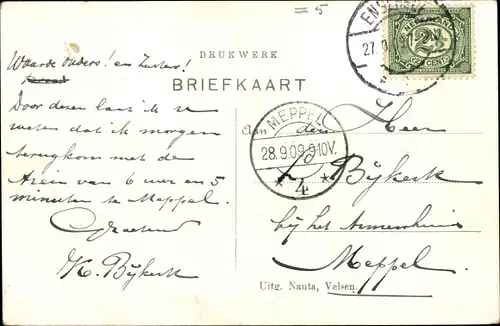 = 5
DRUKWERK
BRIEFKAART
Waarde Ouders! en Zuster!
Door dezen laat ik u
weten dat ik morgen
terugkom met de
trein van 6 uur en 5
minuten te Meppel.
Groetend
K. Bijkerk
MEPPEL
28.9.09.9-10V.
4
2½
CENT
Aan den Heer
Bijkerk
bij het Armenhuis
Meppel.
Uitg. Nauta, Velsen.